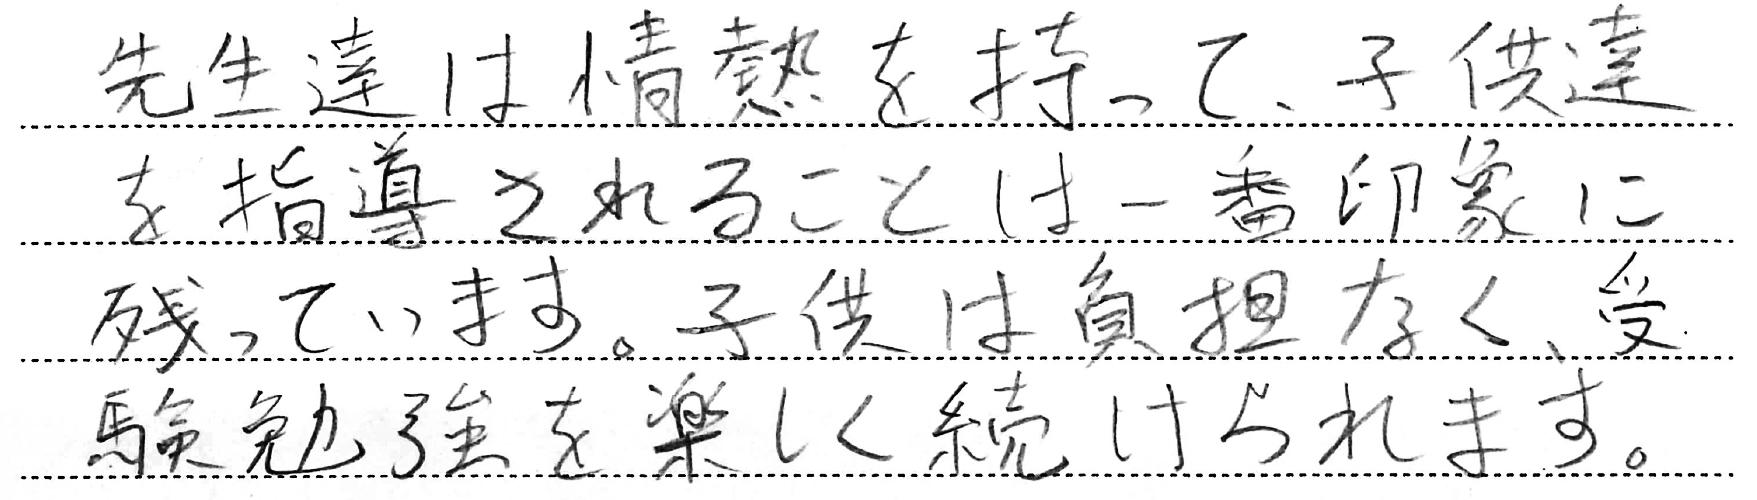 先生達は情熱を持って、子供達
を指導されることは一番印象に
残っています。子供は負担なく、受
験勉強を楽しく続けられます。